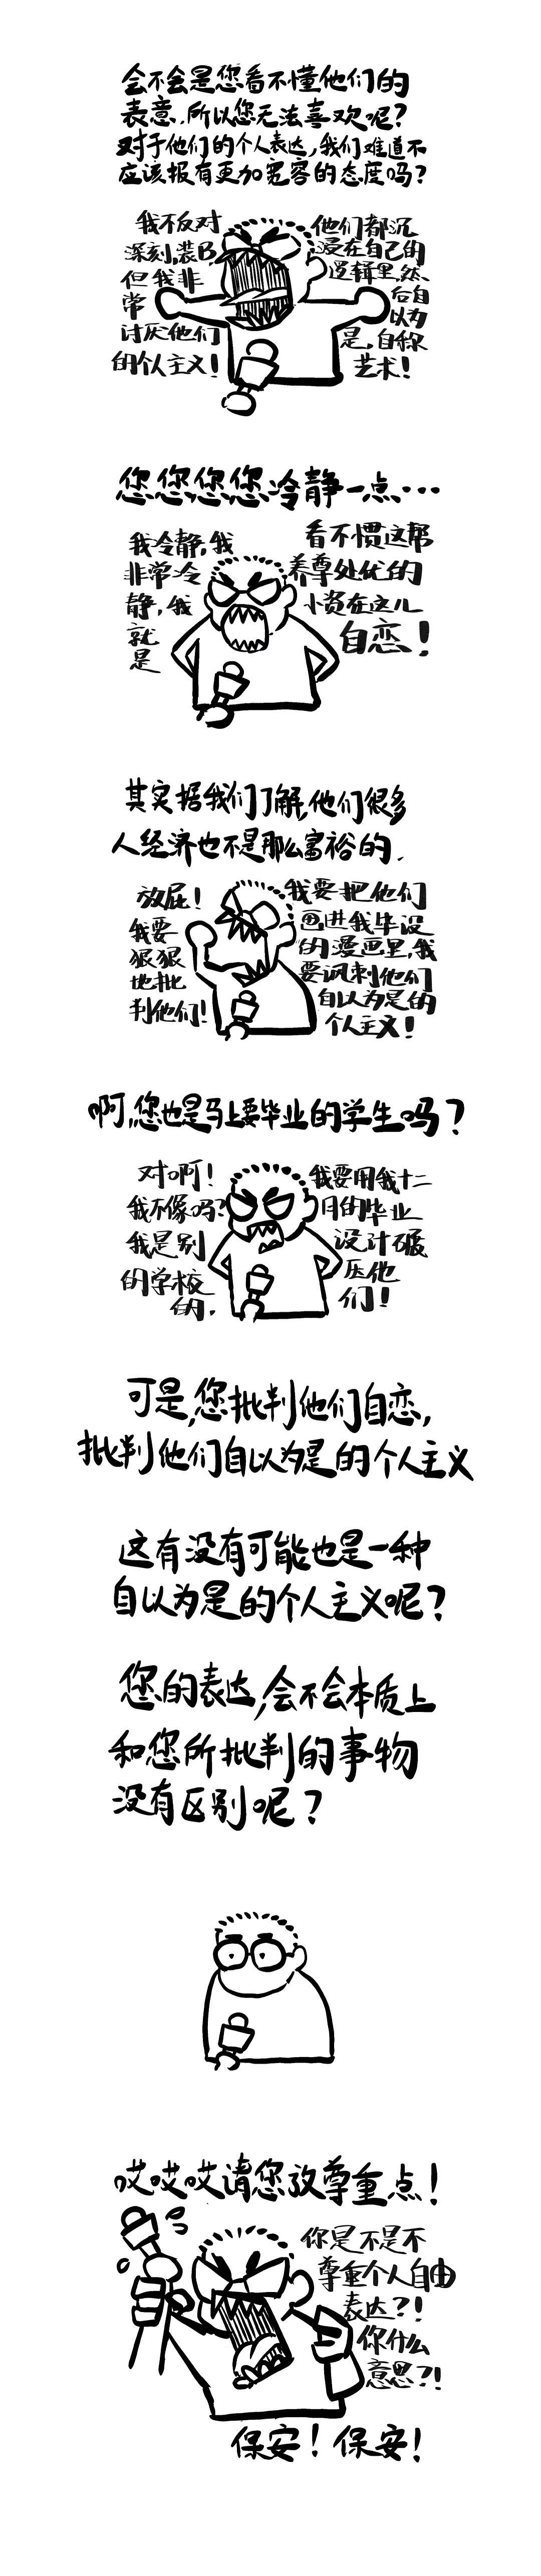 会不会是您看不懂他们的
表意,所以您无法喜欢呢?
对于他们的个人表达,我们难道不
应该报有更加宽容的态度吗?
我不反对
深刻,装B,
但我非
常
讨厌他们
的个人主义!
他们都沉
浸在自己的
逻辑里,然
后自
以为
是,自称
艺术!
您,您,您,您,冷静一点····
我冷静,我
非常冷
静,我
就
是
看不惯这帮
养尊处优的
小资在这儿
自恋!
其实据我们了解,他们很多
人经济也不是那么富裕的.
放屁!
我要
狠狠
地批
判他们!
我要把他们
画进我毕设
的漫画里,我
要讽刺他们
自以为是的
个人主义!
啊,您也是马上要毕业的学生吗?
对啊!
我不像吗?
我是别
的学校
的.
我要用我十二
月的毕业
设计碾
压他
们!
可是,您批判他们自恋,
批判他们自以为是的个人主义
这有没有可能也是一种
自以为是的个人主义呢?
您的表达,会不会本质上
和您所批判的事物
没有区别呢?
哎哎哎请您放尊重点!
你是不是不
尊重个人自由
表达?!
你什么
意思?!
保安!保安!